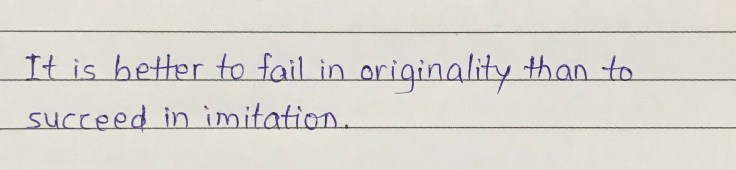 It is better to fail in originality than to
succeed in imitation.